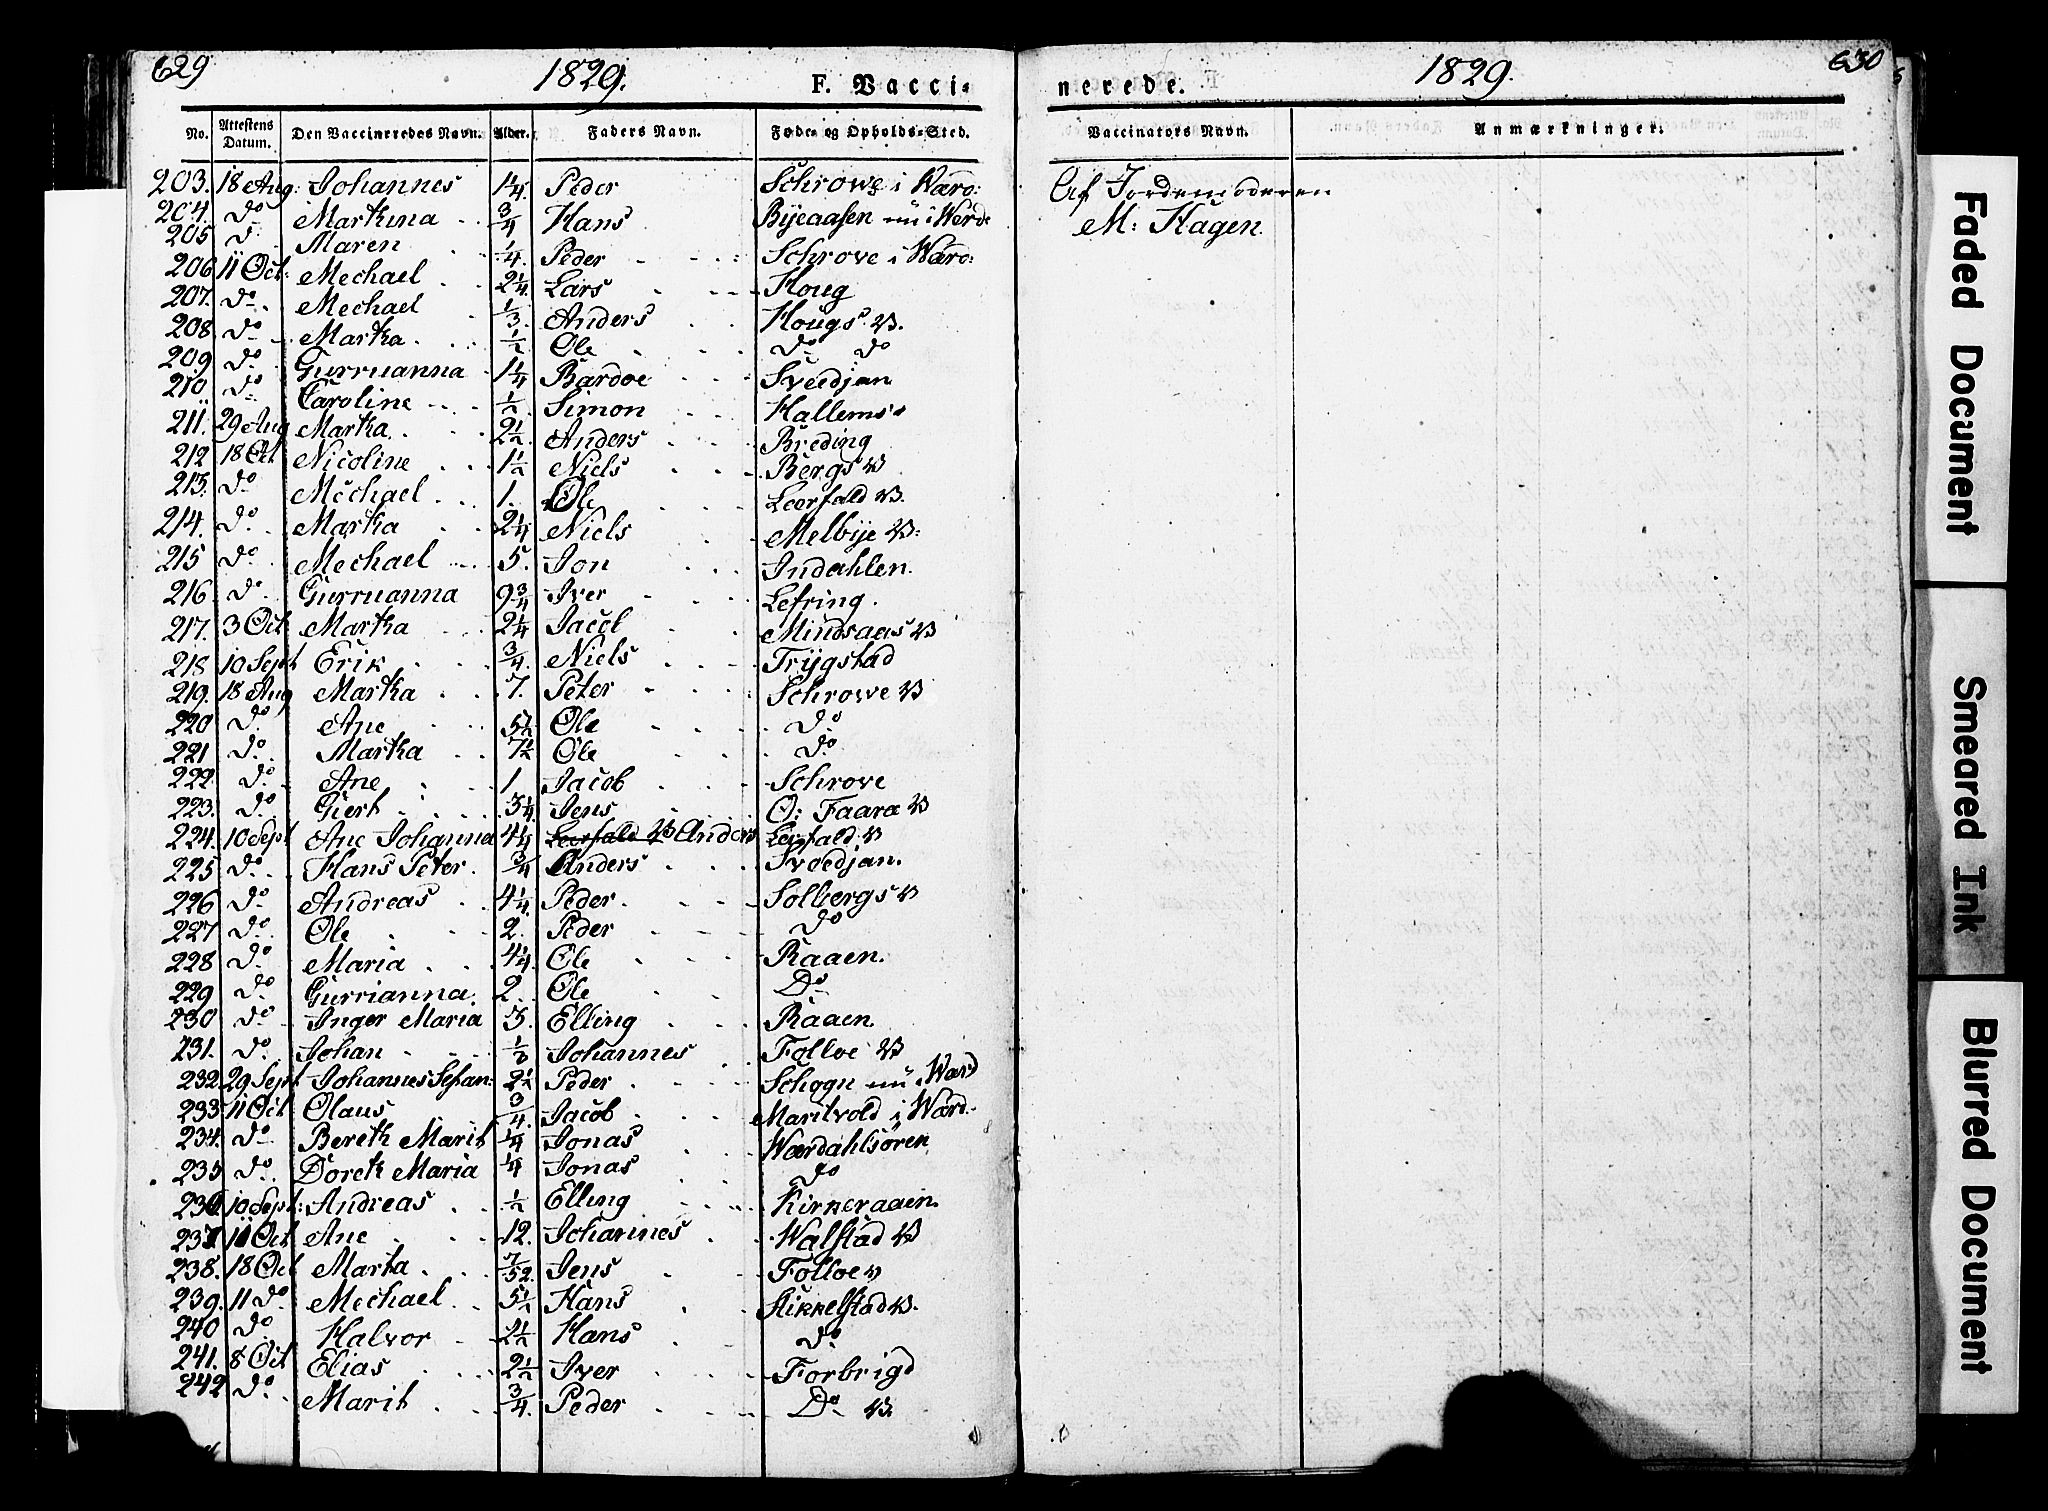 629
1829.
F. Vacci-
No. Attestens Datum. Den Vaccinerredes Navn. Alder. Faders Navn. Føde- og Opholds-Sted.
203. 18 Aug: Johannes 1¼ Peder Schrowe i Wæro:
204. do Martina ¾ Hans Byeaasen nu i Werd:
205 d. Maren ¼ Peder Schrove i Wæro:
206 11 Oct: Mechael 2¼ Lars Houg
207. do Mechael ⅓ Anders Hougs V.
208. do Martha ½ Ole do do
209. do Gurruanna 1¼ Bardoe Sveedjan
210 do Caroline ½ Simon Hallems
211. 29 Aug Martha 2½ Anders Breding
212 18 Oct Nicoline 1½ Niels Bergs V
213. do Mechael 1. Ole Leerfald V.
214. do Martha 2¼ Niels Melbye V:
215 do Mechael 5. Jon Indahlen.
216 do Gurruanna 9¾ Iver Lefring.
217. 3 Oct Martha 2¼ Jacob Mindsaas V
218 10 Sept Erik ¾ Niels Trygstad
219. 18 Aug Martha 7. Peter Schrowe V
220 do Ane 5½ Ole do
221 do Martha 7½ Ole do
222. do Ane 1 Jacob Schrove
223. do Gjert ¾ Jens O: Faara V
224. 10 Sept Ane Johanna 4¼ Leerfald V Anders Leerfald V
225 do Hans Peter ¾ Anders Sveedjan.
226 do Andreas 4¼ Peder Solbergs V
227 do Ole 2. Peder do
228 do Maria 4¼ Ole Raaen.
229 do Gurrianna. 2 Ole Do
230 do Inger Maria 5. Elling Raaen.
231. do Johan Johannes Folloe V
232. 29 Sept Johannes 2½ Peder nu i Wærd
233 11 Oct Olaus ¾ Jacob Maritvold i Wærd.
234. do Bereth Marit ¼ Jonas Wærdahlsören
235 do Doreth Maria ¼ Jonas do
236 10 Sept: Andreas ½ Elling Kirkeraaen.
237 11 Oct Ane 12. Johannes Walstad V
238. 18 Oct Marta 7/52. Jens Folloe V
239. 11 do Mechael 5½ Hans Stikkelstad V.
240 do Halvor 2½ Hans do
241. 8 Oct Elias 2½ Iver Forbrigd
242 do Marit ¾ Peder Do V.
nerede.
1829.
630
Vaccinators Navn. Anmærkninger.
Af Jordemoderen
M: Hagen.
Faded Document
Smeared Ink
Blurred Document